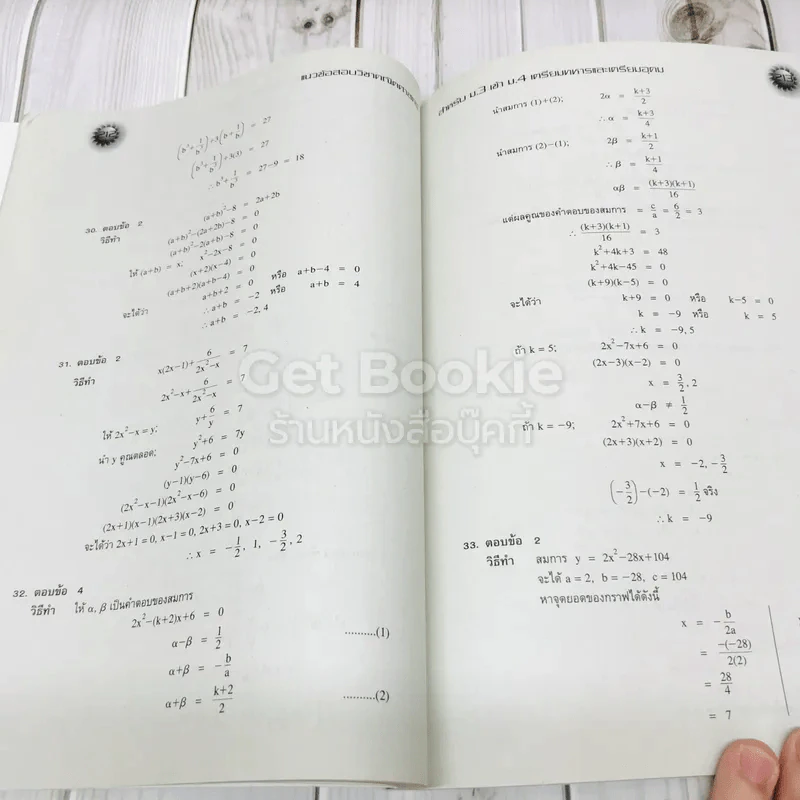 แนวข้อสอบวิชาคณิตศาสตร์
(b³+1/b³)+3(b+1/b) = 27
(b³+1/b³)+3(3) = 27
∴ b³+1/b³ = 27−9 = 18
30. ตอบข้อ 2
วิธีทำ (a+b)²−8 = 2a+2b
(a+b)²−(2a+2b)−8 = 0
(a+b)²−2(a+b)−8 = 0
ให้ (a+b) = x; x²−2x−8 = 0
(x+2)(x−4) = 0
(a+b+2)(a+b−4) = 0
จะได้ว่า a+b+2 = 0 หรือ a+b−4 = 0
∴ a+b = −2 หรือ a+b = 4
∴ a+b = −2, 4
31. ตอบข้อ 2
วิธีทำ x(2x−1)+6/(2x²−x) = 7
2x²−x+6/(2x²−x) = 7
ให้ 2x²−x = y; y+6/y = 7
นำ y คูณตลอด; y²+6 = 7y
y²−7y+6 = 0
(y−1)(y−6) = 0
(2x²−x−1)(2x²−x−6) = 0
(2x+1)(x−1)(2x+3)(x−2) = 0
จะได้ว่า 2x+1 = 0, x−1 = 0, 2x+3 = 0, x−2 = 0
∴ x = −1/2, 1, −3/2, 2
32. ตอบข้อ 4
วิธีทำ ให้ α, β เป็นคำตอบของสมการ
2x²−(k+2)x+6 = 0
α−β = 1/2 ..........(1)
α+β = −b/a
α+β = (k+2)/2 ..........(2)
สำหรับ ม.3 เข้า ม.4 เตรียมทหารและเตรียมอุดม 213
นำสมการ (1)+(2); 2α = (k+3)/2
∴ α = (k+3)/4
นำสมการ (2)−(1); 2β = (k+1)/2
∴ β = (k+1)/4
αβ = (k+3)(k+1)/16
แต่ผลคูณของคำตอบของสมการ = c/a = 6/2 = 3
∴ (k+3)(k+1)/16 = 3
k²+4k+3 = 48
k²+4k−45 = 0
(k+9)(k−5) = 0
จะได้ว่า k+9 = 0 หรือ k−5 = 0
k = −9 หรือ k = 5
∴ k = −9, 5
ถ้า k = 5; 2x²−7x+6 = 0
(2x−3)(x−2) = 0
x = 3/2, 2
α−β ≠ 1/2
ถ้า k = −9; 2x²+7x+6 = 0
(2x+3)(x+2) = 0
x = −2, −3/2
(−3/2)−(−2) = 1/2 จริง
∴ k = −9
33. ตอบข้อ 2
วิธีทำ สมการ y = 2x²−28x+104
จะได้ a = 2, b = −28, c = 104
หาจุดยอดของกราฟได้ดังนี้
x = −b/2a
= −(−28)/2(2)
= 28/4
= 7
Get Bookie
ร้านหนังสือบุ๊คกี้